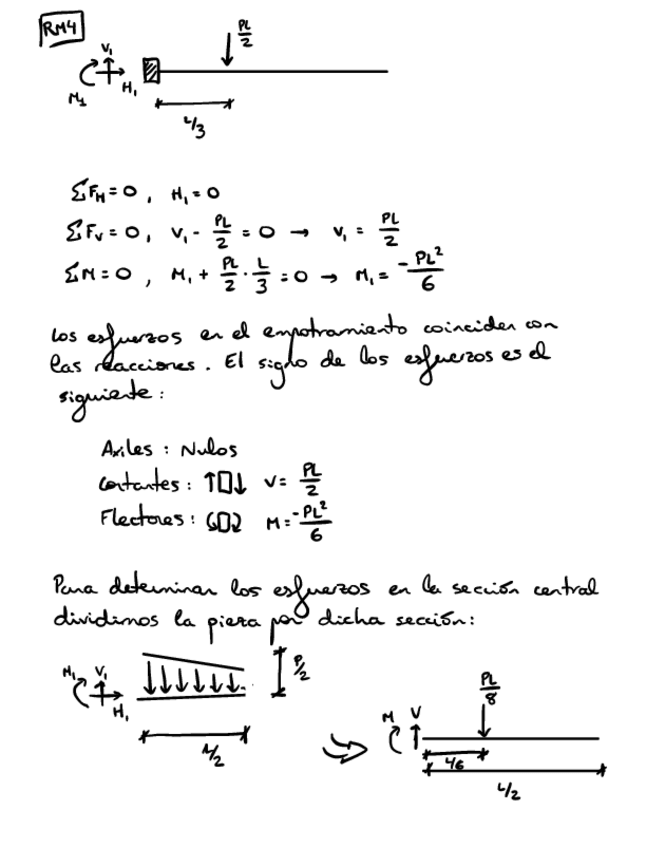 RM4
PL/2
V₁
H₁
M₁
L/3
ΣF_H = 0, H₁ = 0
ΣF_V = 0, V₁ - PL/2 = 0 → V₁ = PL/2
ΣM = 0, M₁ + PL/2 · L/3 = 0 → M₁ = -PL²/6
Los esfuerzos en el empotramiento coinciden con
las reacciones. El signo de los esfuerzos es el
siguiente:
Axiles: Nulos
Cortantes: ↑▯↓ V = PL/2
Flectores: M = -PL²/6
Para determinar los esfuerzos en la sección central
dividimos la pieza por dicha sección:
M₁ V₁
H₁
P/2
L/2
PL/8
M V
L/6
L/2